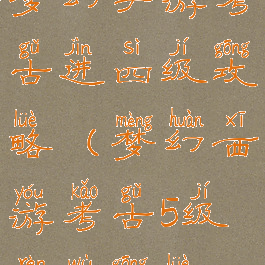 gǔ jìn sì jí gōng
古进四级攻
lüè mèng huàn xī
略（梦幻西
yóu kǎo gǔ jí
游考古5级